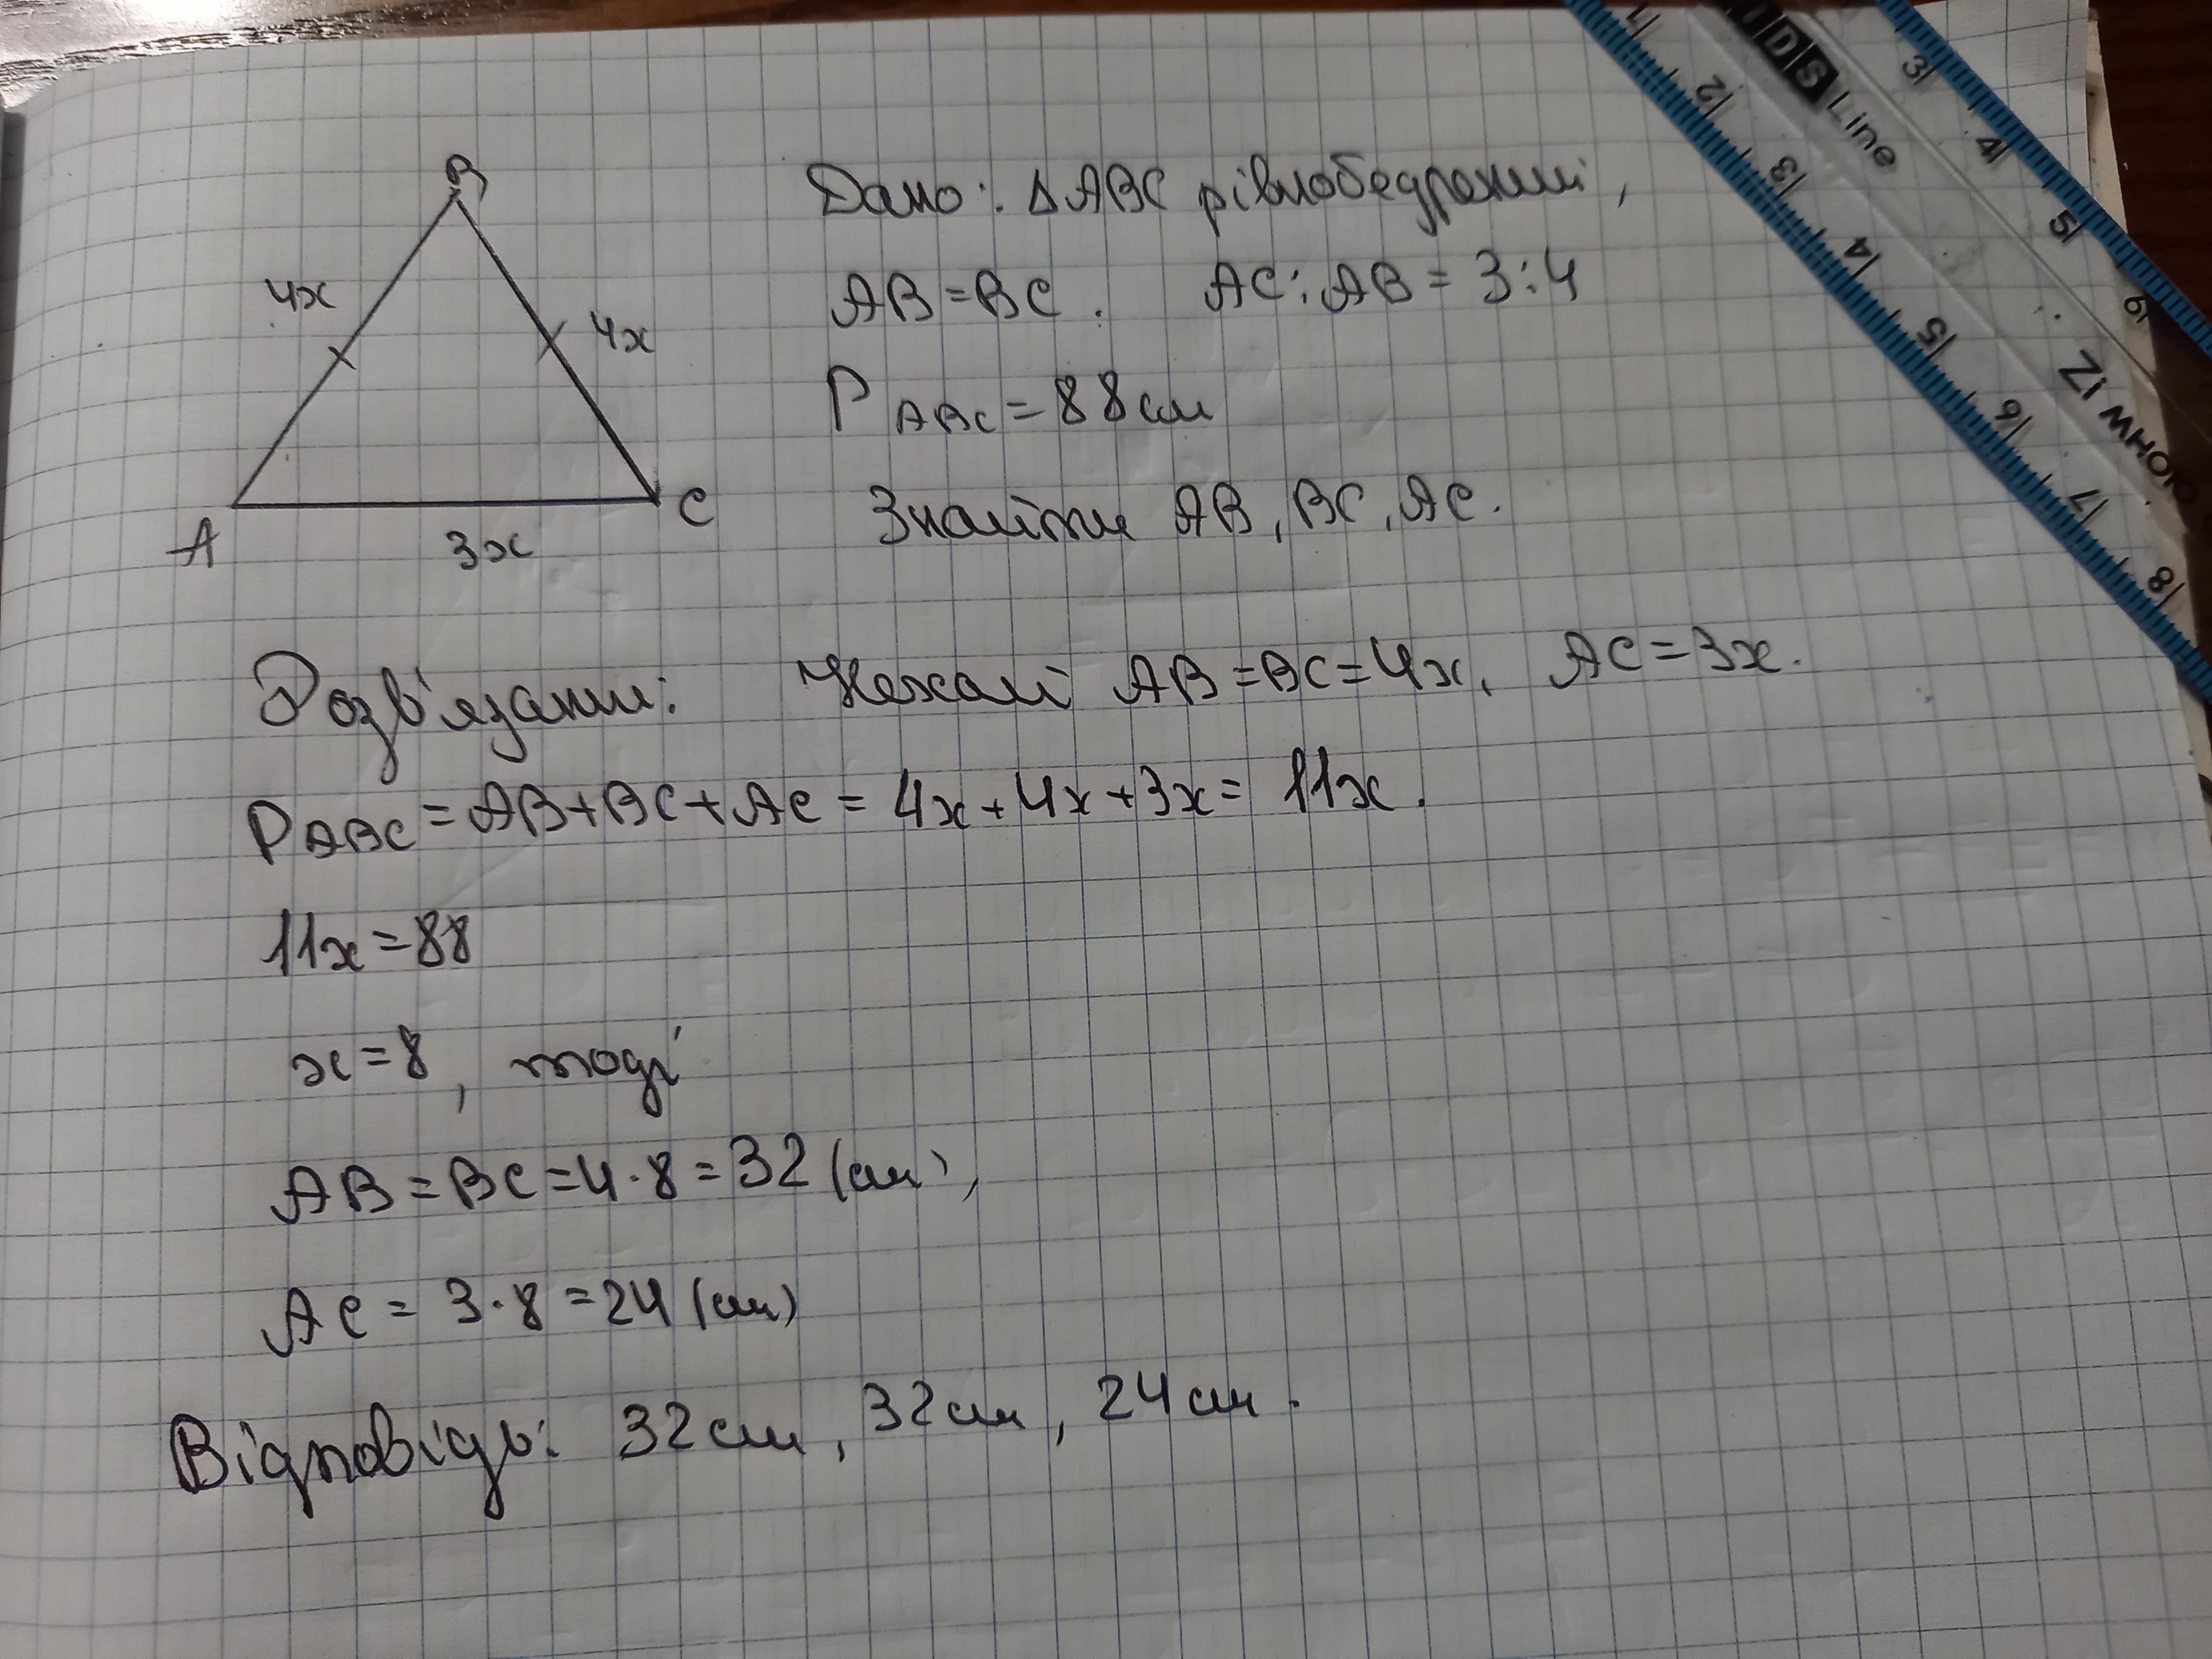 B
4x
4x
A
3x
C
Дано: ΔABC рівнобедрений,
AB=BC. AC:AB=3:4
P ABC=88см
Знайти AB, BC, AC.
Розв'язання: Нехай AB=BC=4x, AC=3x.
P ABC=AB+BC+AC=4x+4x+3x=11x.
11x=88
x=8, тоді
AB=BC=4·8=32(см),
AC=3·8=24(см)
Відповідь: 32см, 32см, 24см.
11 12 13 14 15 16 17 18
IDS Line
3 4 5 6
ZiBi